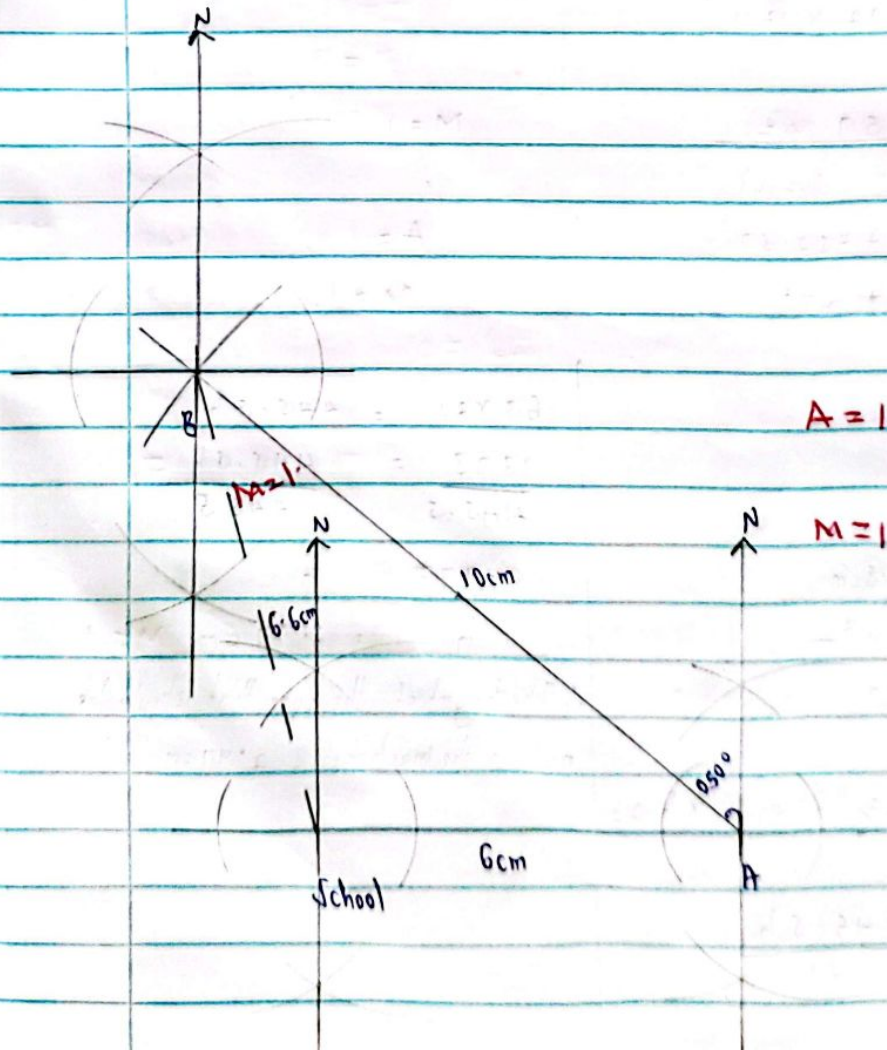 N
B
A = 1
M=1.
N
N
M = 1
10cm
6.6cm
050°
6cm
School
A